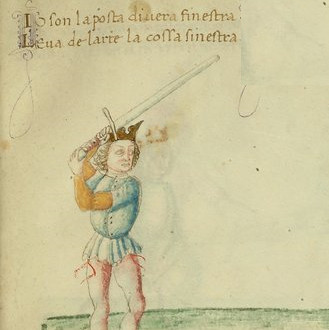 Io son la posta di vera finestra
Leva de l'arte la cossa sinestra